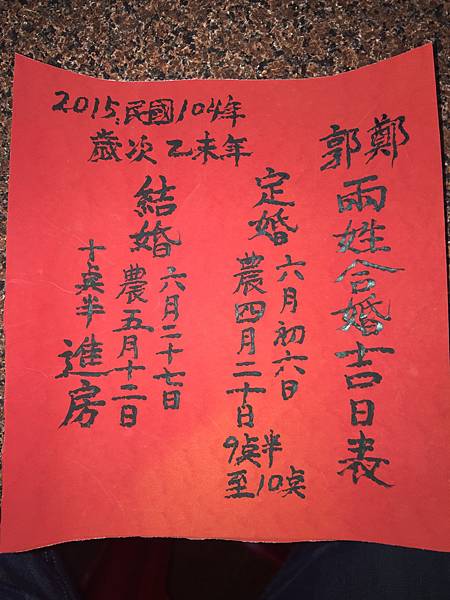 2015.民國104年
歲次乙未年
鄭郭兩姓合婚吉日表
定婚
六月初六日
農四月二十日
9点半
至10点
結婚
六月二十七日
農五月十二日
十点半進房